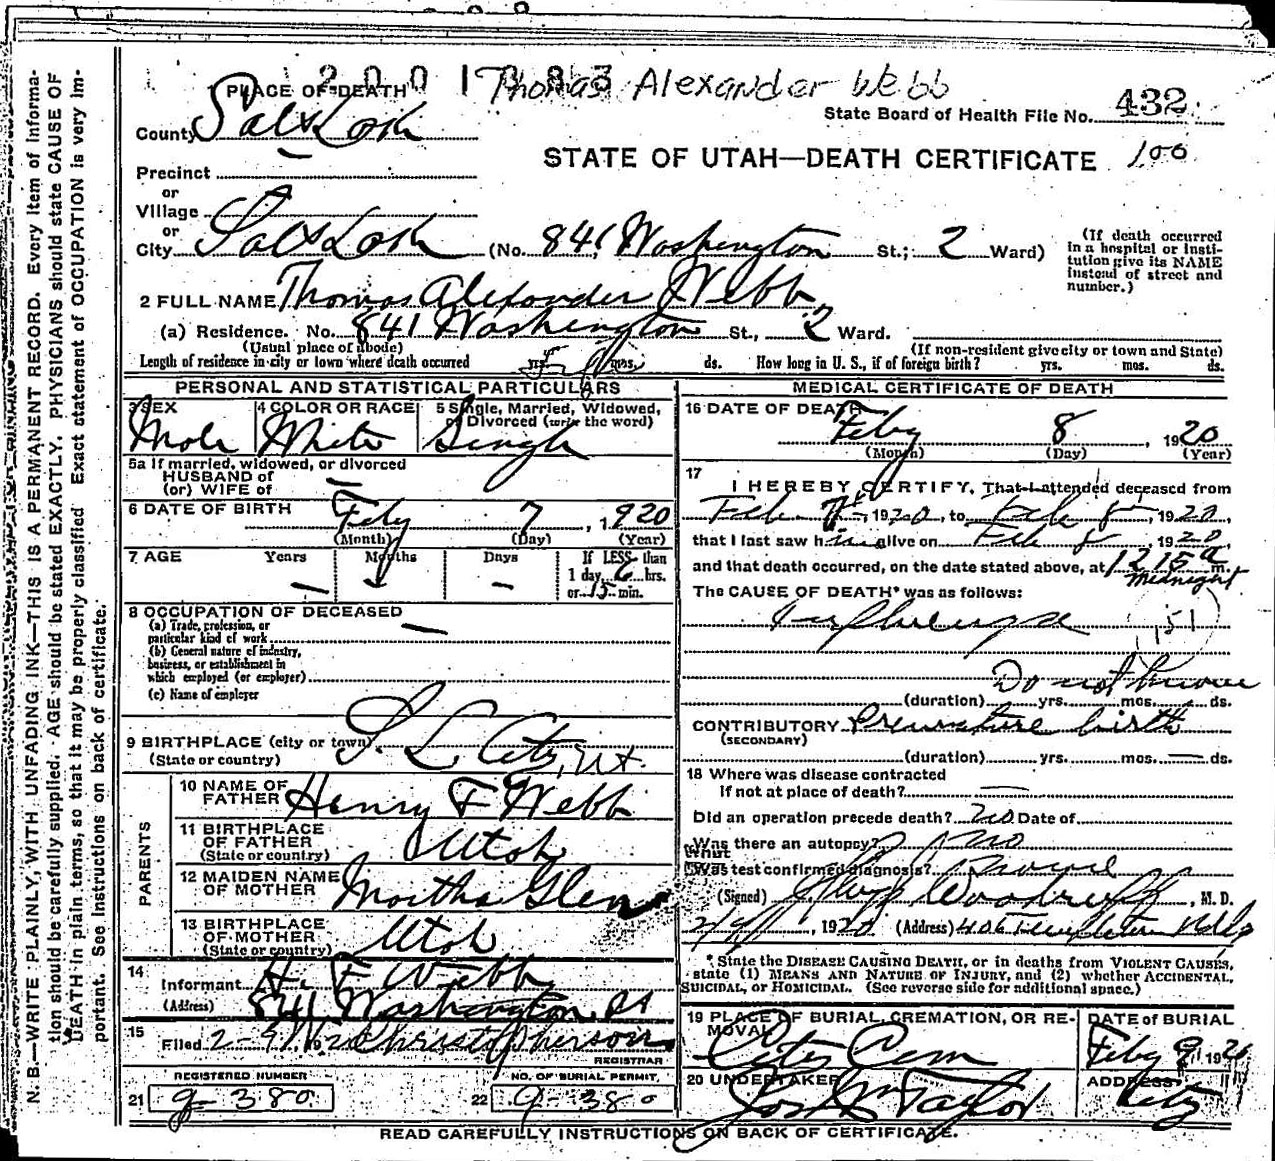 2001083 Thomas Alexander Webb
1 PLACE OF DEATH
State Board of Health File No. 432
County Salt Lake
STATE OF UTAH—DEATH CERTIFICATE 100
Precinct
or
Village
or
City Salt Lake (No. 841 Washington St.; 2 Ward)
(If death occurred in a hospital or institution give its NAME instead of street and number.)
2 FULL NAME Thomas Alexander Webb
(a) Residence. No. 841 Washington St., 2 Ward.
(Usual place of abode) (If non-resident give city or town and State)
Length of residence in city or town where death occurred yrs. mos. ds. How long in U. S., if of foreign birth? yrs. mos. ds.
PERSONAL AND STATISTICAL PARTICULARS
3 SEX 4 COLOR OR RACE 5 Single, Married, Widowed, or Divorced (write the word)
Male White Single
5a If married, widowed, or divorced
HUSBAND of
(or) WIFE of
6 DATE OF BIRTH Feby 7, 1920
(Month) (Day) (Year)
7 AGE Years Months Days If LESS than
1 day 6 hrs.
or 15 min.
8 OCCUPATION OF DECEASED
(a) Trade, profession, or
particular kind of work
(b) General nature of industry,
business, or establishment in
which employed (or employer)
(c) Name of employer
9 BIRTHPLACE (city or town) S. L. City, Ut.
(State or country)
PARENTS
10 NAME OF FATHER Henry F Webb
11 BIRTHPLACE OF FATHER Utah
(State or country)
12 MAIDEN NAME OF MOTHER Martha Glen
13 BIRTHPLACE OF MOTHER Utah
(State or country)
14
Informant H. F. Webb
(Address) 841 Washington St
15
Filed 2-9 Christopherson
REGISTRAR
REGISTERED NUMBER NO. OF BURIAL PERMIT.
21 g-380 22 g-380
MEDICAL CERTIFICATE OF DEATH
16 DATE OF DEATH
Feby 8, 1920
(Month) (Day) (Year)
17
I HEREBY CERTIFY, That I attended deceased from
Feb 7, 1920, to Feb 8, 1920,
that I last saw him alive on Feb 8, 1920,
and that death occurred, on the date stated above, at 1215 a m.
midnight
The CAUSE OF DEATH* was as follows:
151
Do not know
(duration) yrs. mos. ds.
CONTRIBUTORY Premature birth
(SECONDARY)
(duration) yrs. mos. ds.
18 Where was disease contracted
If not at place of death?
Did an operation precede death? no Date of
Was there an autopsy? no
What
Was test confirmed diagnosis?
(Signed) Woodruff, M. D.
1920 (Address) 406 Templeton Bldg
* State the DISEASE CAUSING DEATH, or in deaths from VIOLENT CAUSES,
state (1) MEANS AND NATURE OF INJURY, and (2) whether ACCIDENTAL,
SUICIDAL, or HOMICIDAL. (See reverse side for additional space.)
19 PLACE OF BURIAL, CREMATION, OR REMOVAL DATE of BURIAL
City Cem Feby 9, 1920
20 UNDERTAKER ADDRESS
Jos Wm Taylor City
READ CAREFULLY INSTRUCTIONS ON BACK OF CERTIFICATE.
N. B.—WRITE PLAINLY, WITH UNFADING INK—THIS IS A PERMANENT RECORD. Every item of information should be carefully supplied. AGE should be stated EXACTLY. PHYSICIANS should state CAUSE OF DEATH in plain terms, so that it may be properly classified. Exact statement of OCCUPATION is very important. See instructions on back of certificate.